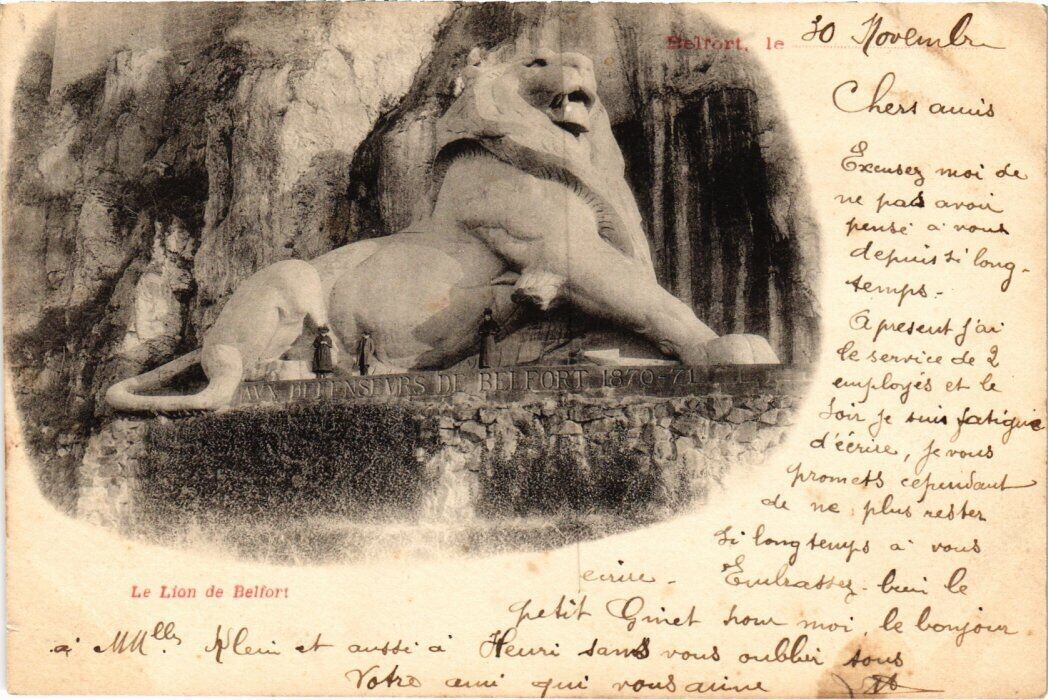 Belfort, le 30 Novembre
Chers amis
Excusez moi de
ne pas avoir
pensé à vous
depuis si long-
temps.
A present j'ai
le service de 2
employés et le
soir je suis fatigué
d'écrire, je vous
promets cependant
de ne plus rester
si longtemps à vous
écrire. Embrassez bien le
petit Ginet pour moi, le bonjour
à MMlles Klein et aussi à Henri sans vous oublier tous
Votre ami qui vous aime
AUX DEFENSEURS DE BELFORT 1870-71
Le Lion de Belfort